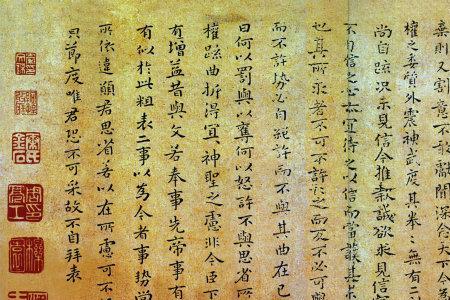 棄則又割意不敢獻聞深念天下今為
權之委質外震神武度其拳拳無有二
尚自疏況未見信今推款誠欲求見信
不自信之心亦宜待之以信而當護其
也其所求者不可不許許之而反不必可與
而不許勢必自絕許而不與其曲在己
曰何以罰與以奪何以怒許不與思省所
權疏曲折得宜神聖之慮非今臣下
有增益昔與文若奉事先帝事有
有似於此粗表二事以為今者事勢尚
所依違願君思省若以在所慮可不
節度唯君恐不可采故不自拜表